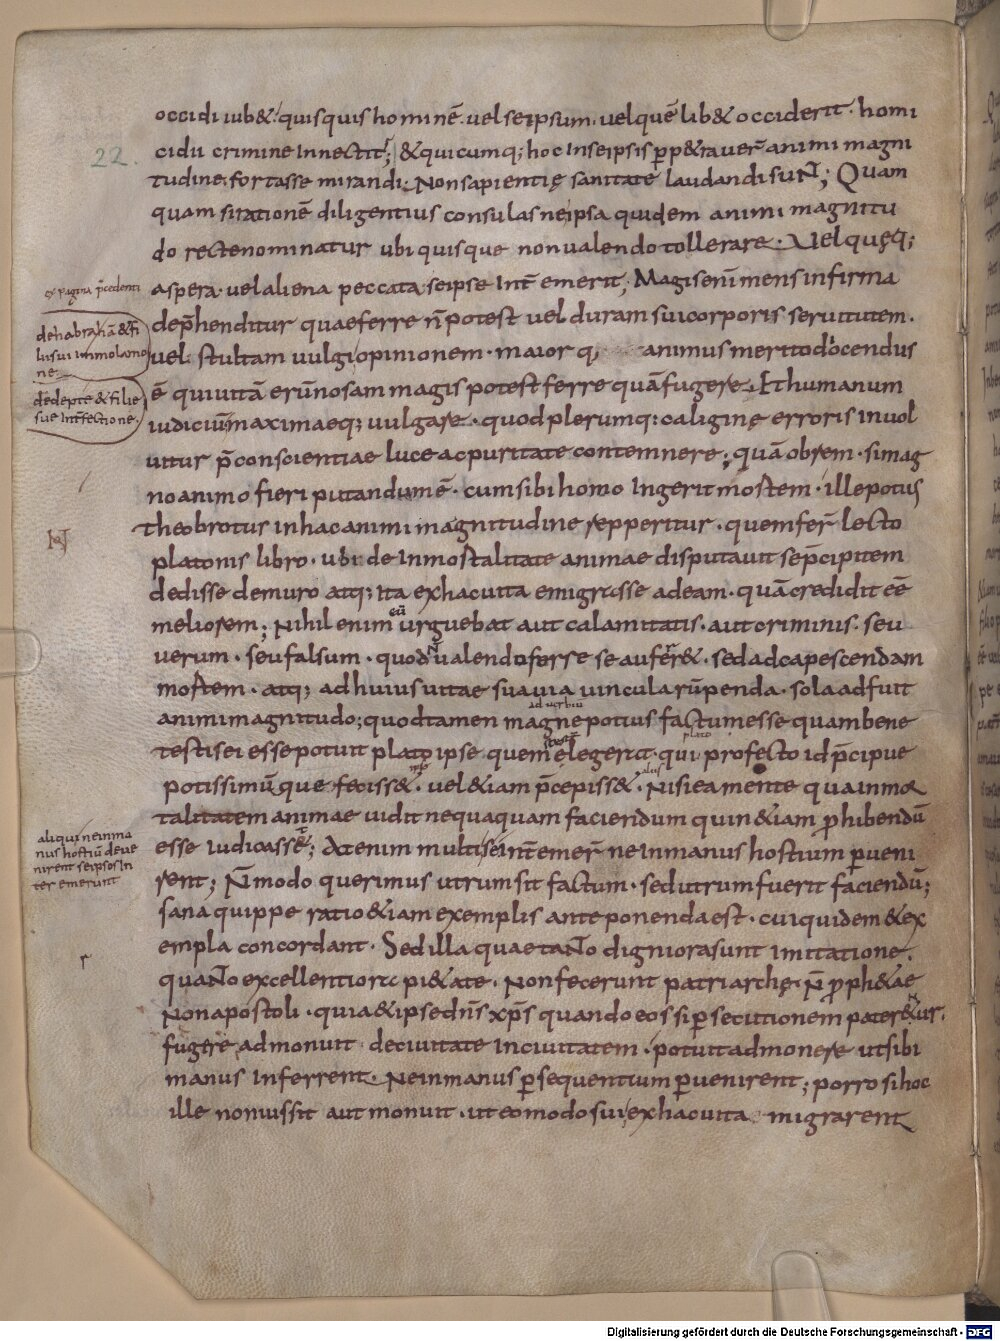 occidi iub&. quisquis hominē. vel seipsum. vel quēlib& occiderit. homi
22.
cidii crimine innectit; & quicumq; hoc in seipsis ꝑp&raver̄ animi magni
tudine. fortasse mirandi. Non sapientię sanitate laudandi suN̄; Quam
quam si rationē diligentius consulas ne ipsa quidem animi magnitu
do recte nominatur ubi quisque non valendo tollerare. Vel quęq;
aspera. vel aliena peccata. seipse int̄emerit; Magis eni mens infirma
ex pagina p̄cedenti
dep̄henditur quae ferre n̄ potest vel duram sui corporis servitutem.
de habrahā & fi
lii sui inmolatione
ne
vel stultam vulgi opinionem. maior q; animus merito docendus
de iepte & filie
sue int̄fectione.
ē qui vitā erūnosam magis potest ferre quā fugere. Et humanum
iudiciū maximaeq; vulgare. quod plerumq; caligine erroris invol
vitur p̄ conscientiae luce ac puritate contemnere; quā obrem. si mag
no animo fieri putandum ē. cum sibi homo ingerit mortem. ille potius
theobrotus in hac animi magnitudine repperitur. quem fer̄ lecto
platonis libro. ubi de inmortalitate animae disputavit se p̄cipitem
dedisse de muro atq; ita ex hac vita emigrasse ad eam. quā credidit eē
meliorem; Nihil enim eū urguebat aut calamitatis. aut criminis. seu
verum. seu falsum. quod N̄ valendo ferre se aufer&. sed ad capescendam
mortem. atq; ad huius vitae suavia vincula rūpenda. sola adfuit
animi magnitudo; quod tamen magne potius factum esse quam bene
ad verbiū
testis ei esse potuit plato ipse quem legerat. qui profecto id p̄cipue
plato
potissimūque feciss&. vel &iam p̄cepiss&. Nisi ea mente qua inmor
talitatem animae vidit nequaquam faciendum quin &iam ꝓhibendū
esse iudicasse; At enim multi se int̄emer̄ ne in manus hostium ꝑveni
aliqui ne in ma
nus hostiū deve
nirent seipsos in
teremerunt
rent; N̄ modo querimus utrum sit factum. sed utrum fuerit faciendū;
sana quippe ratio &iam exemplis anteponenda est. cui quidem & ex
empla concordant. Sed illa quae taN̄o digniora sunt imitatione.
quaN̄o excellentiora pi&ate. Non fecerunt patriarchę. N̄ ꝓph&ae
Non apostoli. quia & ipse dn̄s xp̄s quando eos si ꝑsecutionem pater&ur.
fugere admonuit de civitate in civitatem. potuit admonere ut sibi
manus inferrent. Ne in manus ꝑsequentium ꝑvenirent; porro si hoc
ille non iussit aut monuit. ut eo modo sui ex hac vita migrarent